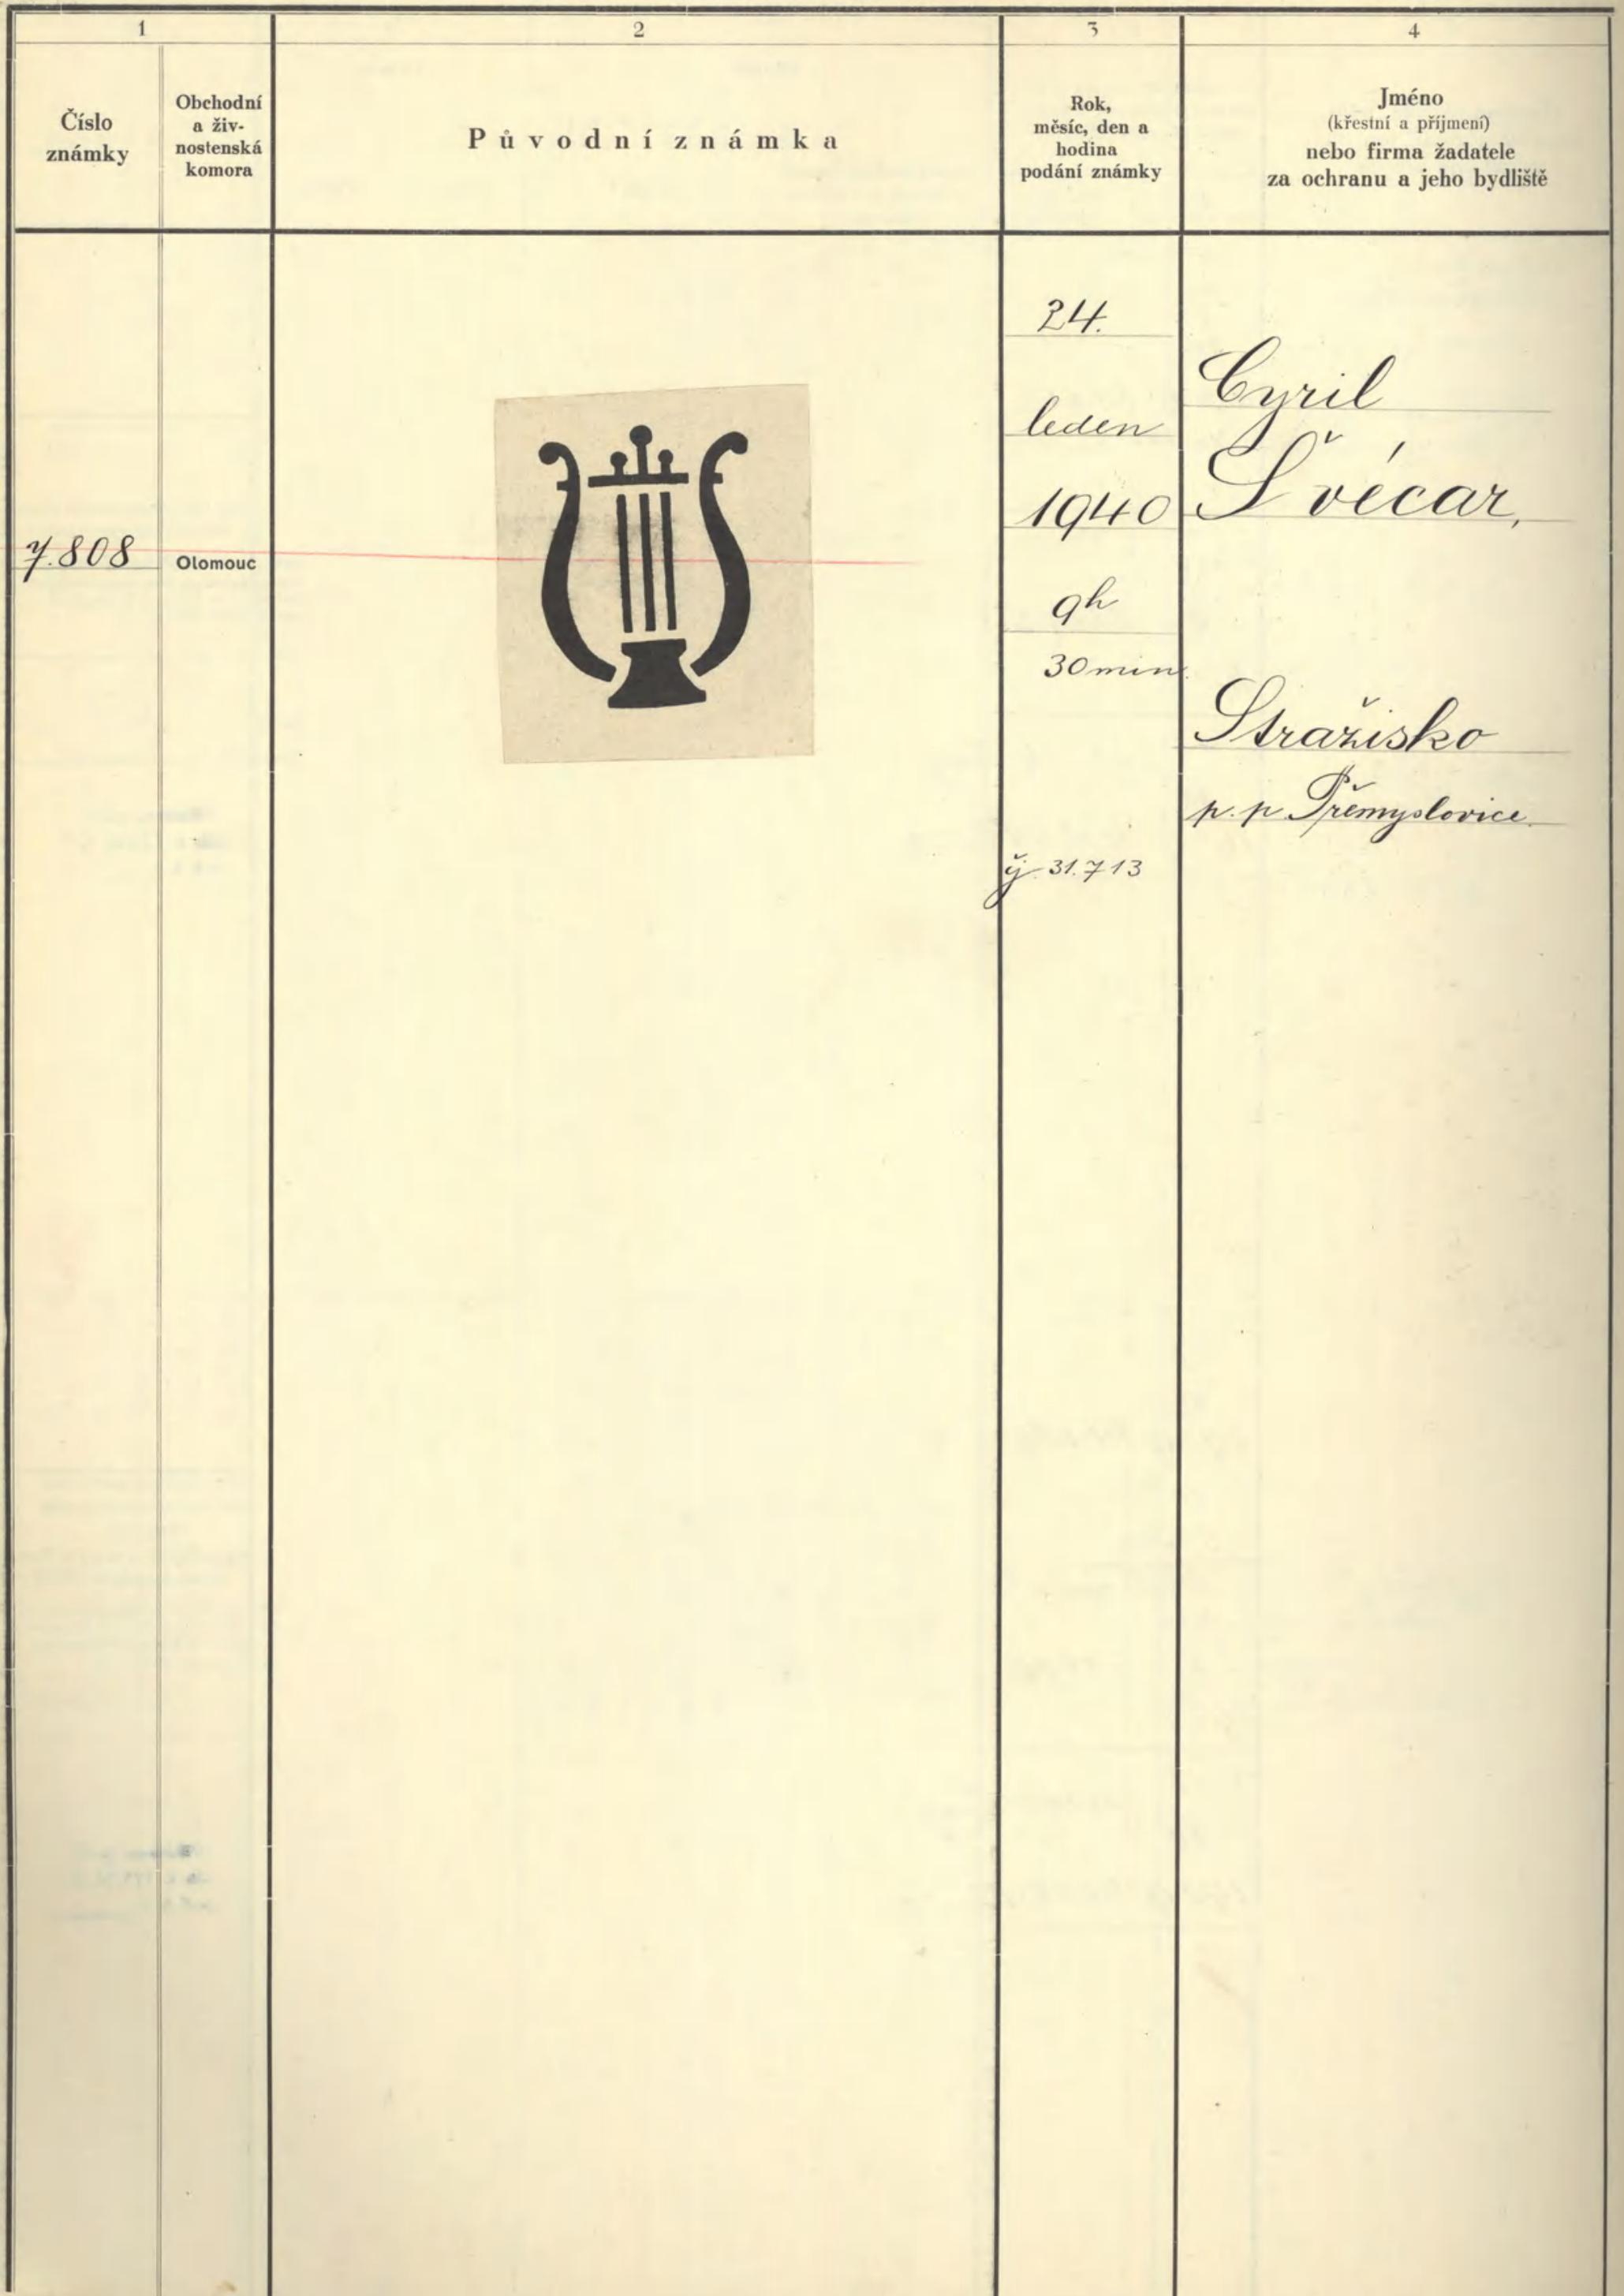 1
2
3
4
Číslo
známky
Obchodní
a živ-
nostenská
komora
Původní známka
Rok,
měsíc, den a
hodina
podání známky
Jméno
(křestní a příjmení)
nebo firma žadatele
za ochranu a jeho bydliště
7.808
Olomouc
24.
leden
1940
9h
30 min.
čj. 31.713
Cyril
Švécar,
Stražisko
p. p. Přemyslovice